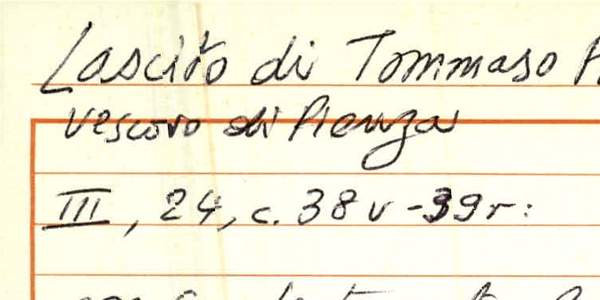 Lascito di Tommaso
vescovo di Pienza
III, 24, c. 38v-39r: